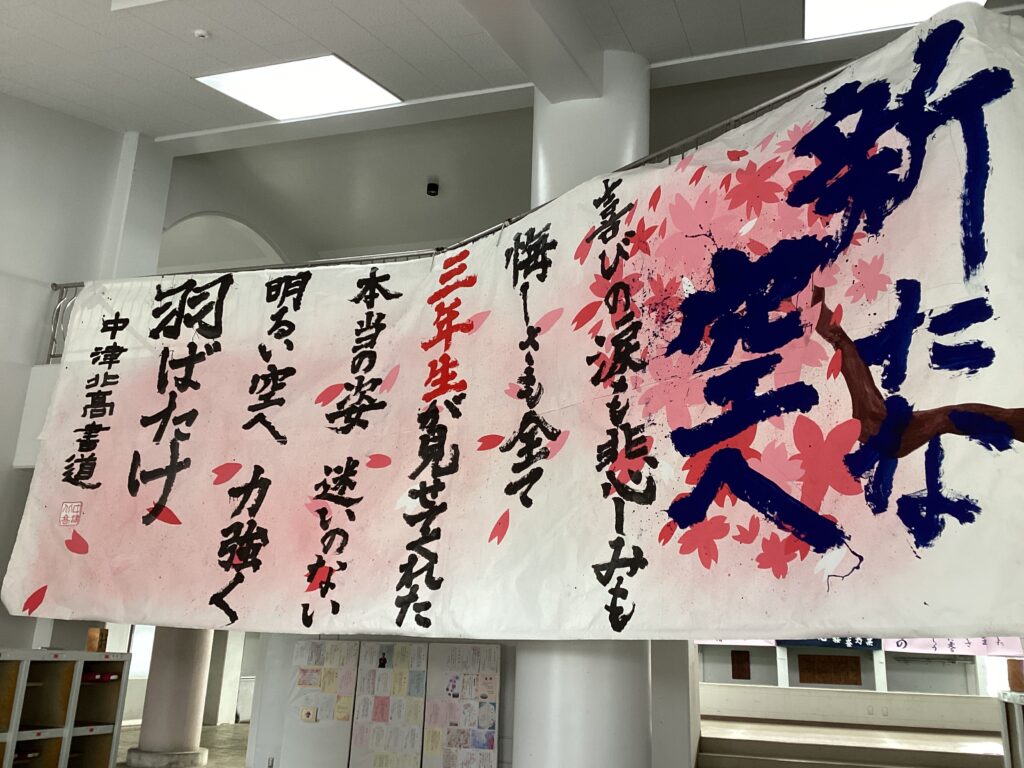 新たな
空へ
喜びの涙も悲しみも
悔しさも全て
三年生が見せてくれた
本当の姿 迷いのない
明るい空へ 力強く
羽ばたけ
中津北高書道